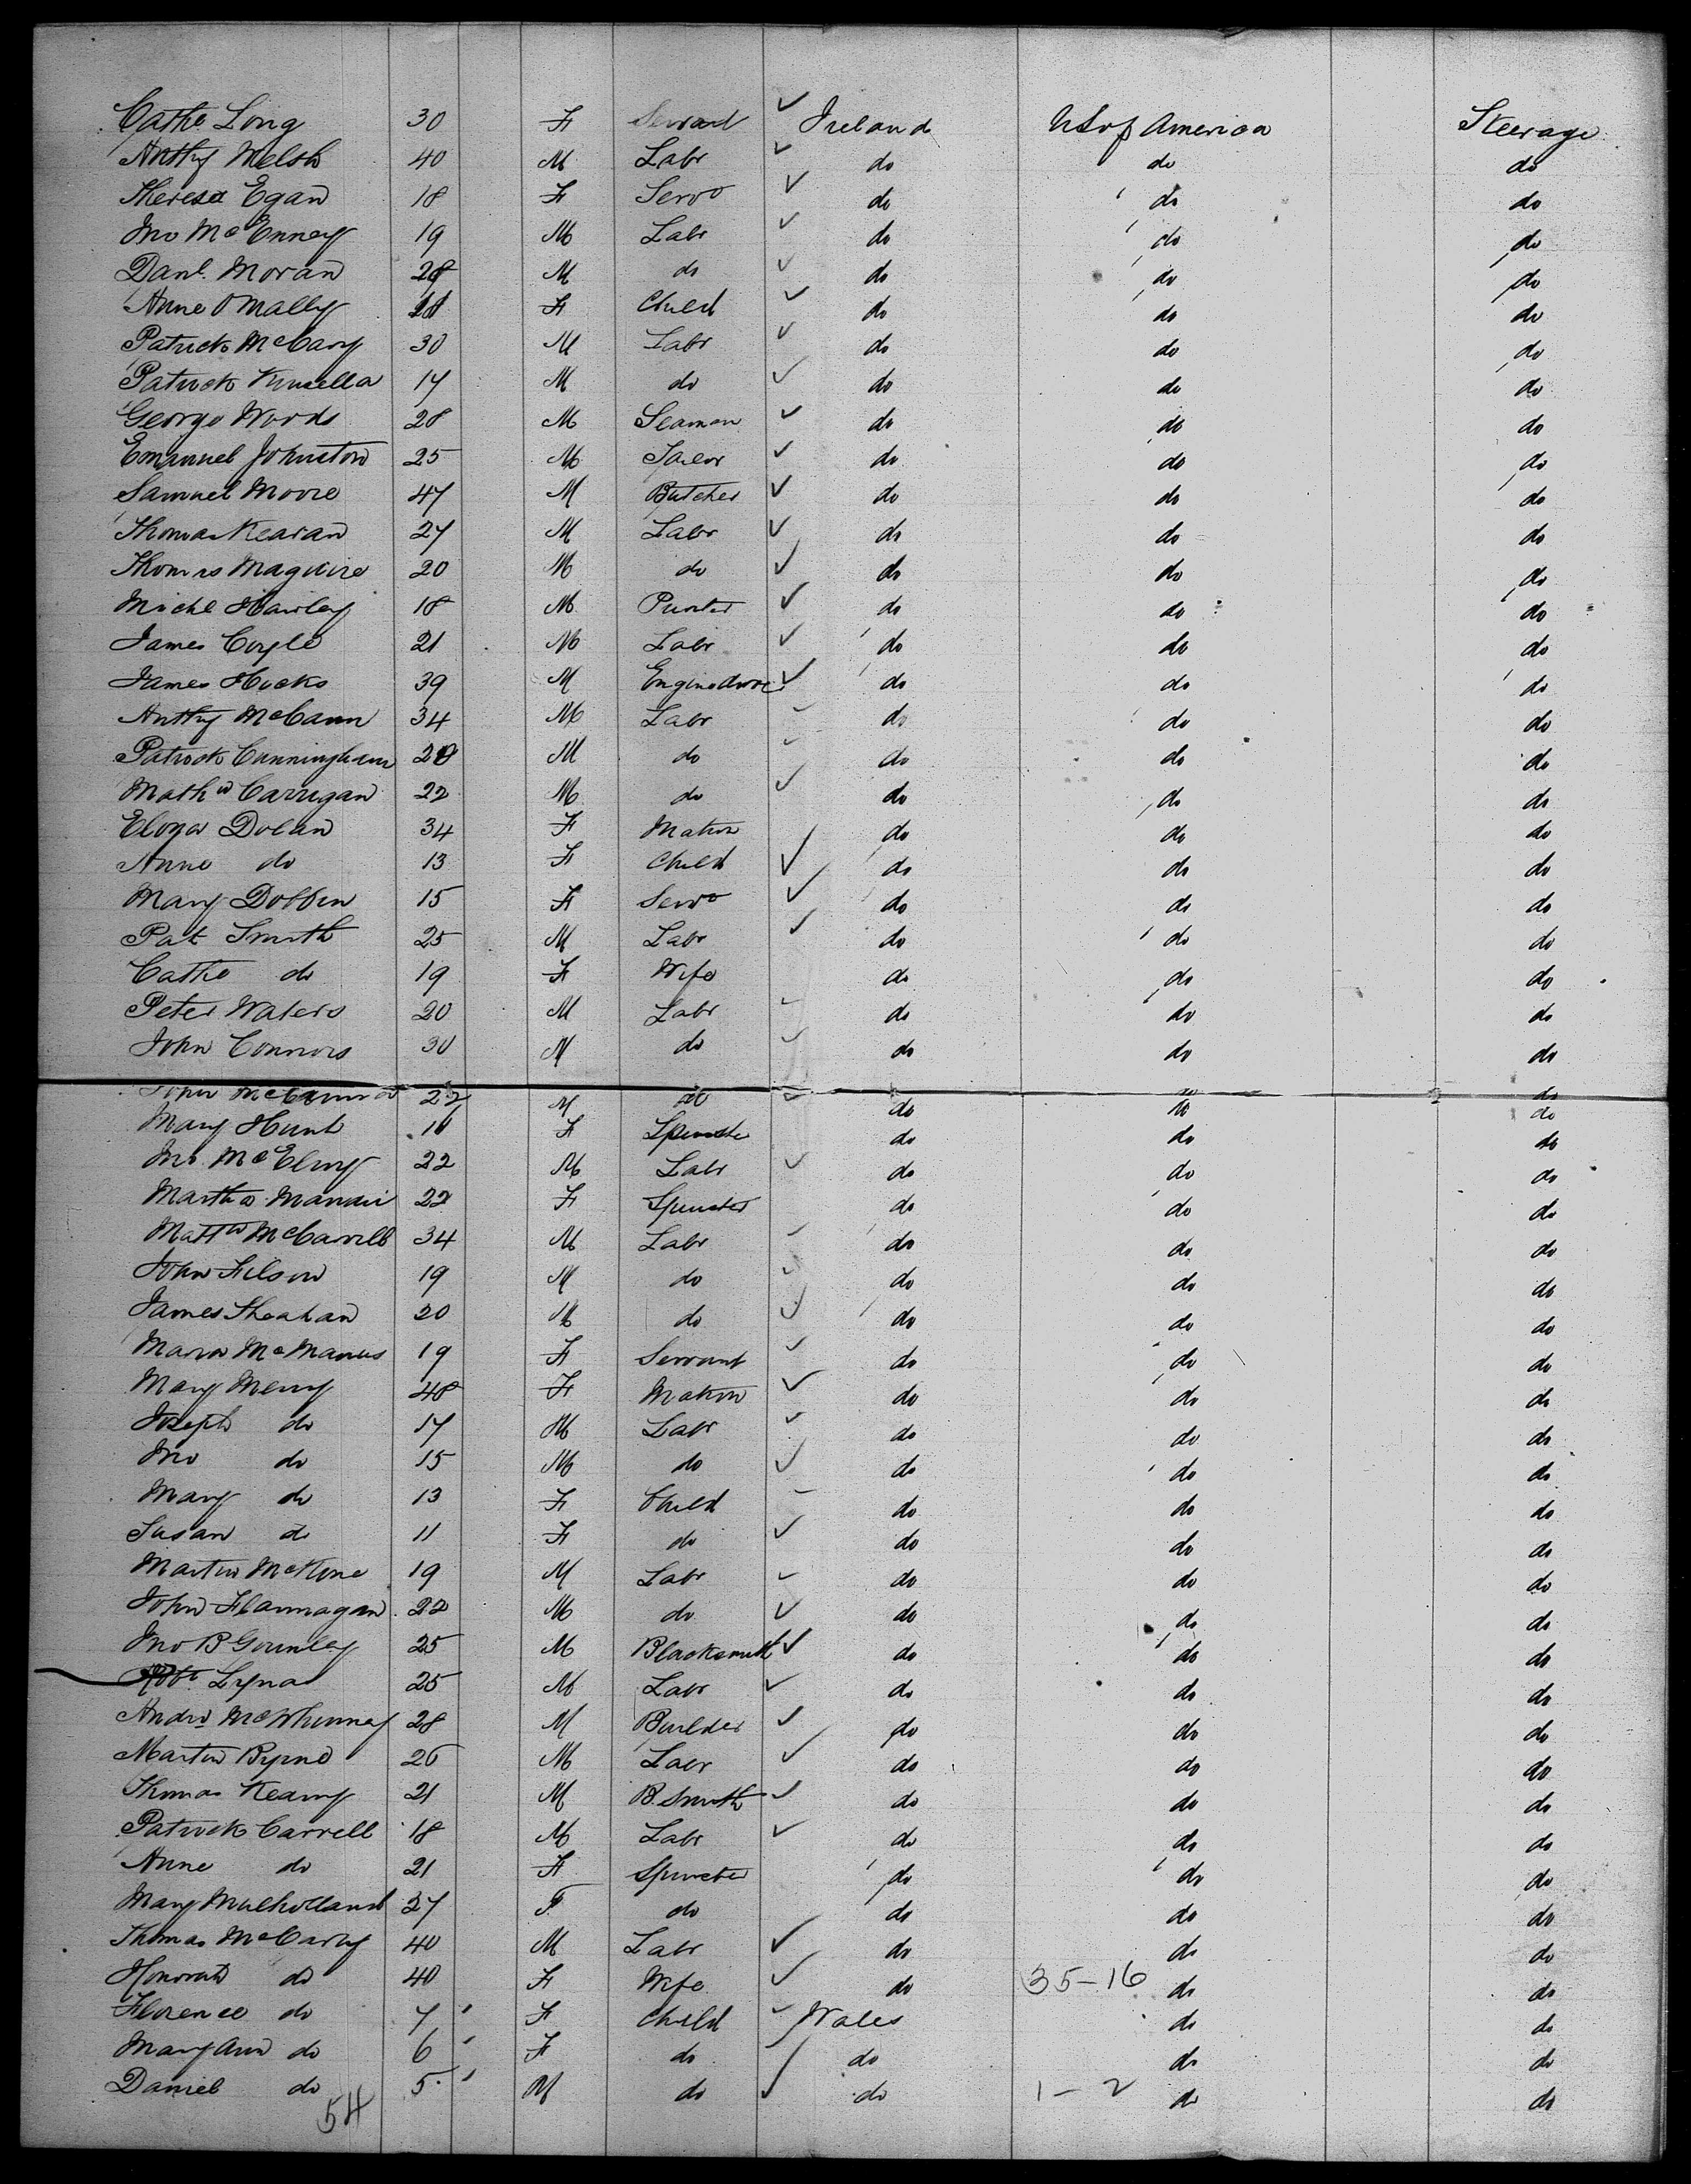 Cathe Long 30 F Servant Ireland US of America Steerage
Anthy Welsh 40 M Labr do do do
Theresa Egan 18 F Servt do do do
Jno McEnney 19 M Labr do do do
Danl. Moran 28 M do do do do
Anne O Mally F Child do do do
Patrick McCavy 30 M Labr do do do
Patrick Kinsella 17 M do do do do
George Woods 28 M Seaman do do do
Emanuel Johnston 25 M Tailor do do do
Samuel Moore 47 M Butcher do do do
Thomas Kearan 27 M Labr do do do
Thomas Maguire 20 M do do do do
Michl Hawley 18 M Printer do do do
James Coyle 21 M Labr do do do
James Hicks 39 M do do do
Anthy McCann 34 M Labr do do do
Patrick Cunningham M do do do do
Mathw Carrigan 22 M do do do do
Dolan 34 F Matron do do do
Anne do 13 F Child do do do
Mary Dobbin 15 F Servt do do do
Pat Smith 25 M Labr do do do
Cathe do 19 F Wife do do do
Peter Waters 20 M Labr do do do
John Connors 30 M do do do do
John 22 M do do do do
Mary Hunt 16 F Spinster do do do
Jno. McElroy 22 M Labr do do do
Martha 22 F Spinster do do do
Mattw McCarroll 34 M Labr do do do
John Filson 19 M do do do do
James Sheahan 20 M do do do do
Maria McManus 19 F Servant do do do
Mary Merry 48 F Matron do do do
Joseph do 17 M Labr do do do
Jno do 15 M do do do do
Mary do 13 F Child do do do
Susan do 11 F do do do do
Martin McKone 19 M Labr do do do
John Flannagan 22 M do do do do
Jno B Gormley 25 M Blacksmith do do do
Robt Lynas 25 M Labr do do do
Andw McWhinney 28 M Builder do do do
Martin Byrne 26 M Labr do do do
Thomas Kearny 21 M B. Smith do do do
Patrick Carrell 18 M Labr do do do
Anne do 21 F Spinster do do do
Mary Mulholland 27 F do do do do
Thomas McCarty 40 M Labr do do do
Honorah do 40 F Wife do 35-16 do do
Florence do 7 F Child Wales do do
Mary Ann do 6 F do do do do
Daniel do 5 M do do 1-2 do do
54